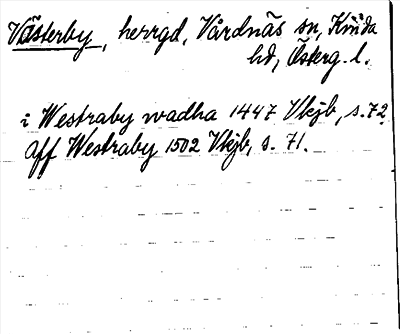 Västerby, herrgd, Vårdnäs sn, Kinda
hd, Österg. l.
i Westraby wadha 1447 Vkjb, s. 72.
aff Westraby 1502 Vkjb, s. 71.